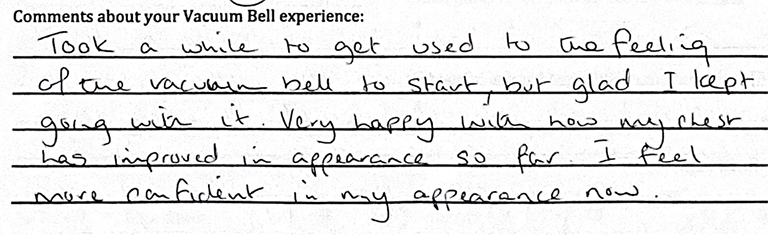 Comments about your Vacuum Bell experience:
Took a while to get used to the feeling
of the vacuum bell to start, but glad I kept
going with it. Very happy with how my chest
has improved in appearance so far. I feel
more confident in my appearance now.